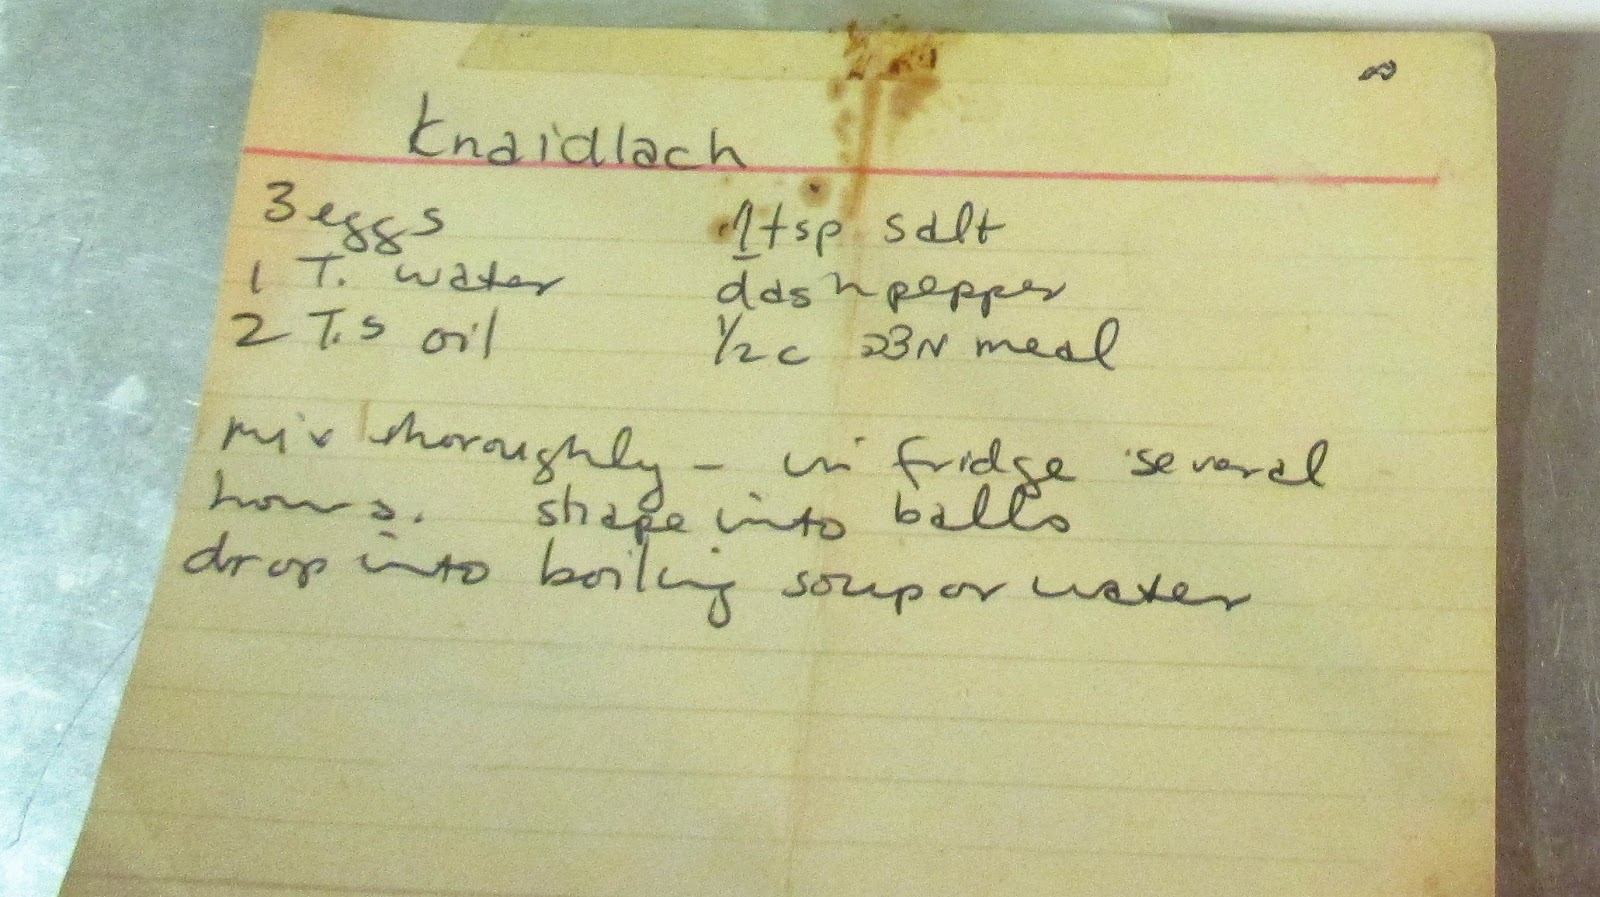 Knaidlach
3 eggs 1 tsp salt
1 T. water dash pepper
2 T.s oil 1/2 c מצה meal
mix thoroughly - in fridge several
hours. shape into balls
drop into boiling soup or water